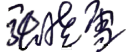 张晓雪